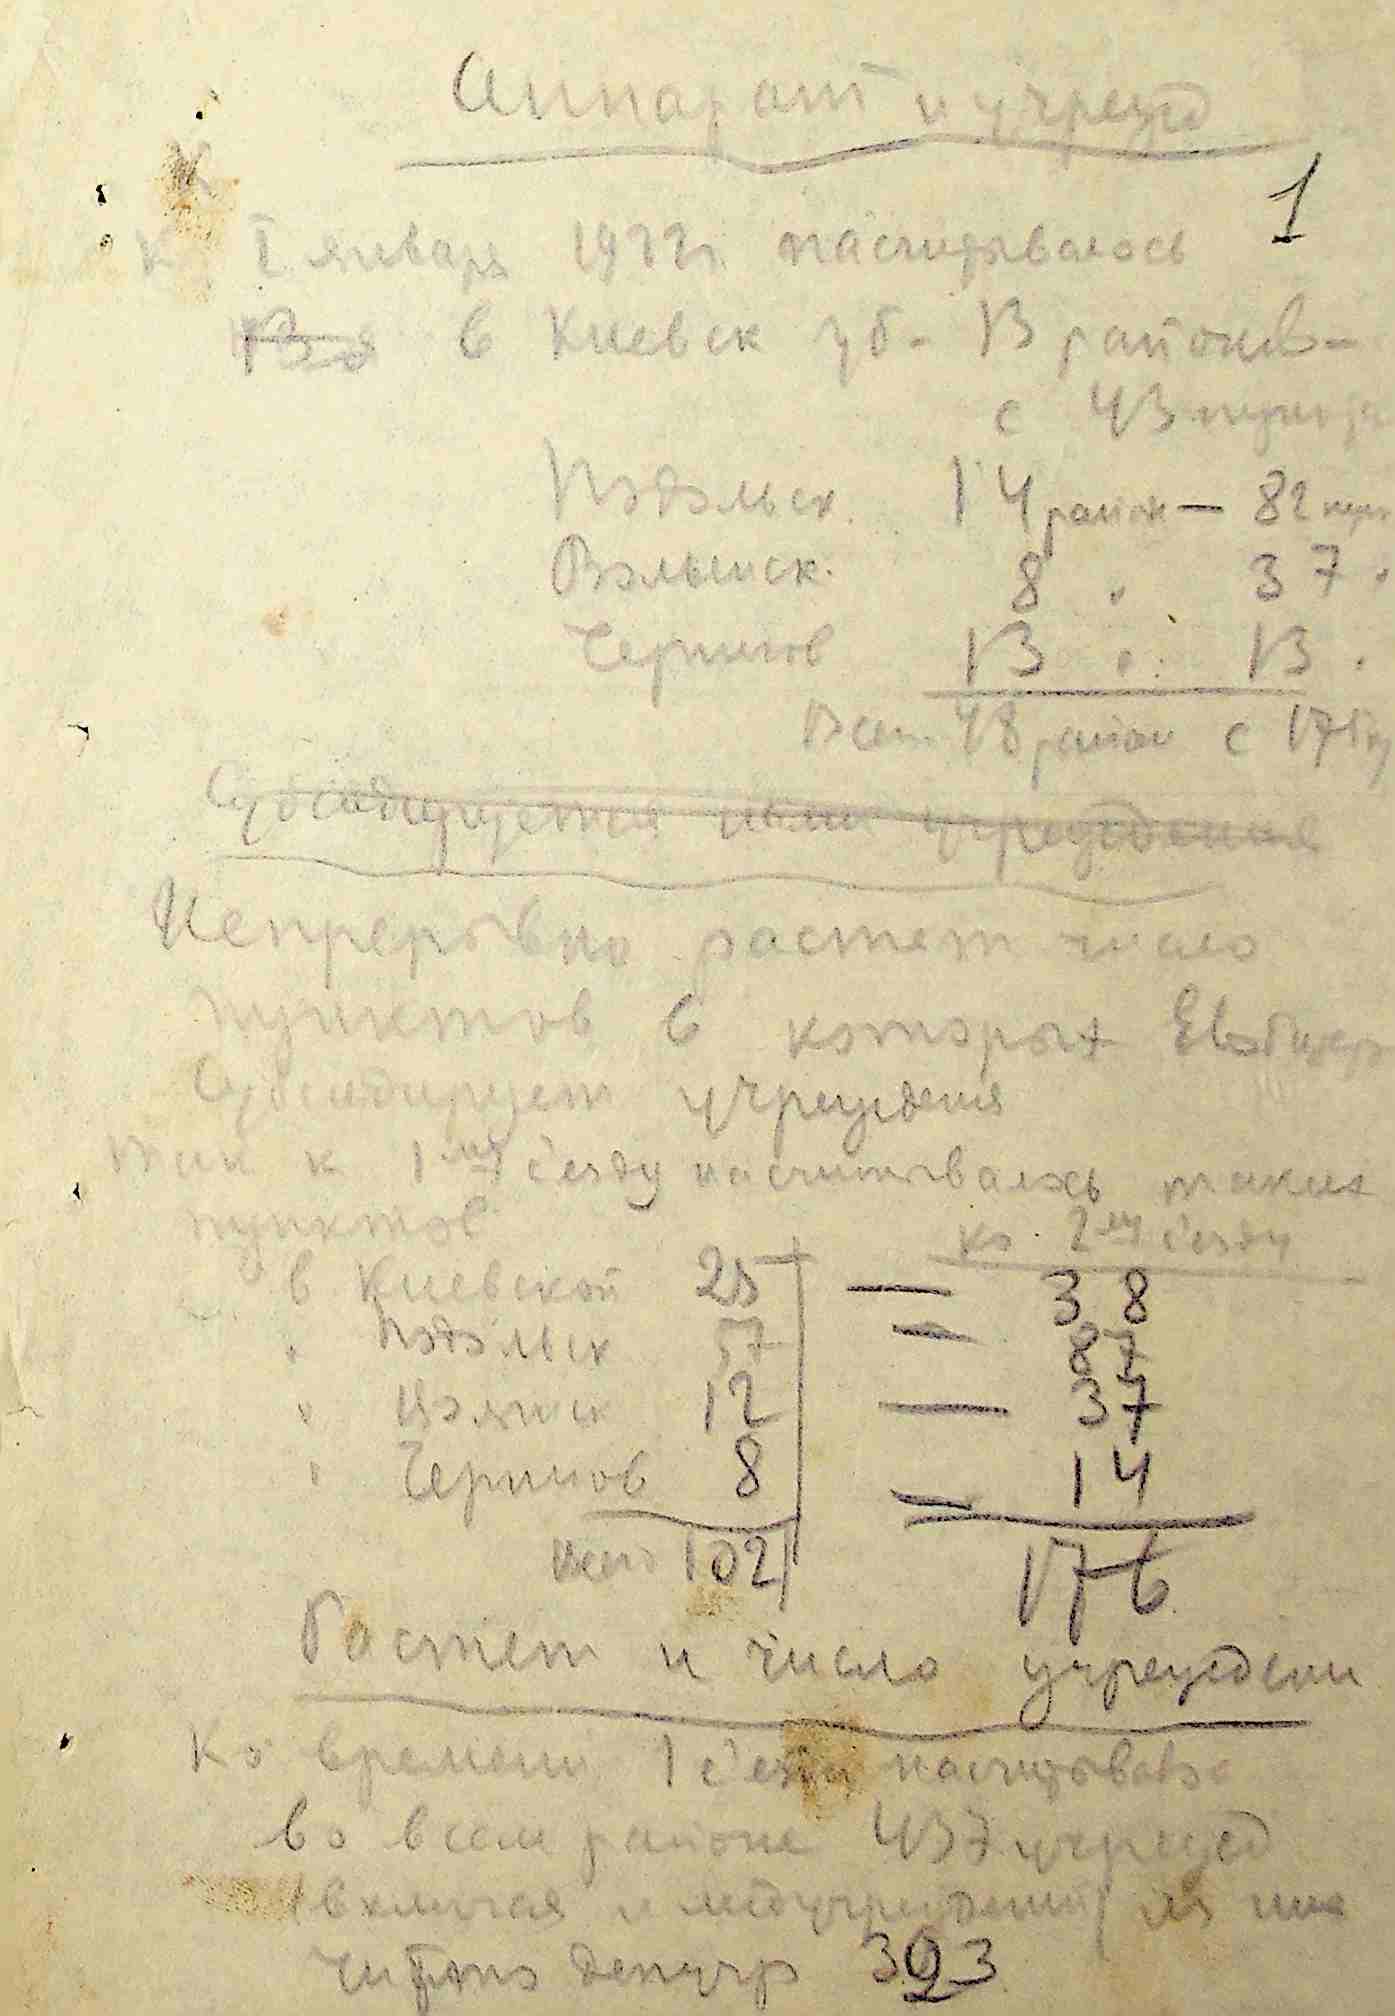 Аппарат и учрежд
1
К I января 1922 г. насчитывалось
в Киевск губ - 13 районов -
с 43 пункта
Подольск. 14 район - 82 пунк
Волынск. 8 " 37 "
Чернигов 13 " 13 "
Всего 48 район с 175 п
Субсидируемые нами учреждения
Непрерывно растет число
пунктов в которых Евобщ
субсидирует учреждения
Так к 1му с'езду насчитывалось таких
пунктов ко 2му с'езду
в Киевской 25 — 38
" Подольск 57 — 87
" Волынск 12 — 37
" Чернигов 8 — 14
Всего 102 176
Растет и число учреждени
Ко времени 1 с'езда насчитывало
во всем районе 437 учрежд
(включая и медучреждения) из них
чисто детучр 393